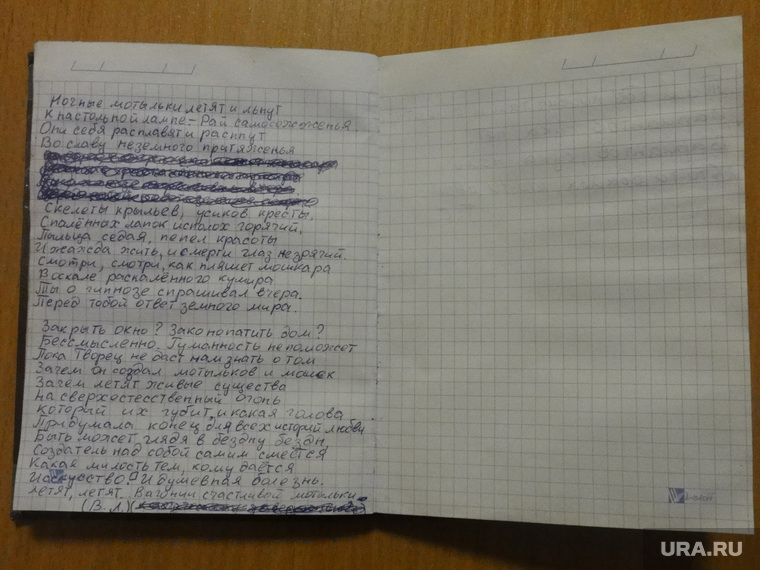 Ночные мотыльки летят и льнут
К настольной лампе – Рай самосожженья.
Они себя расплавят и распнут
Во славу неземного притяженья
Скелеты крыльев, усиков кресты.
Спалённых лапок исполох горячий.
Пыльца седая, пепел красоты
И жажда жить, и смерти глаз незрячий.
Смотри, смотри, как пляшет мошкара
В оскале раскалённого кумира
Ты о гипнозе спрашивал вчера.
Перед тобой ответ земного мира.
Закрыть окно? Законопатить дом?
Бессмысленно. Гуманность не поможет
Пока Творец не даст нам знать о том
Зачем он создал мотыльков и мошек
Зачем летят живые существа
На сверхестесственный огонь
Который их губит, и какая голова
Придумала конец для всех историй любви
Быть может, глядя в бездну бездн,
Создатель над собой самим смеётся
Какая милость тем, кому даётся
Искусство! И душевная болезнь.
Летят, летят.. В агонии счастливой мотыльки
(В. Л)
URA.RU